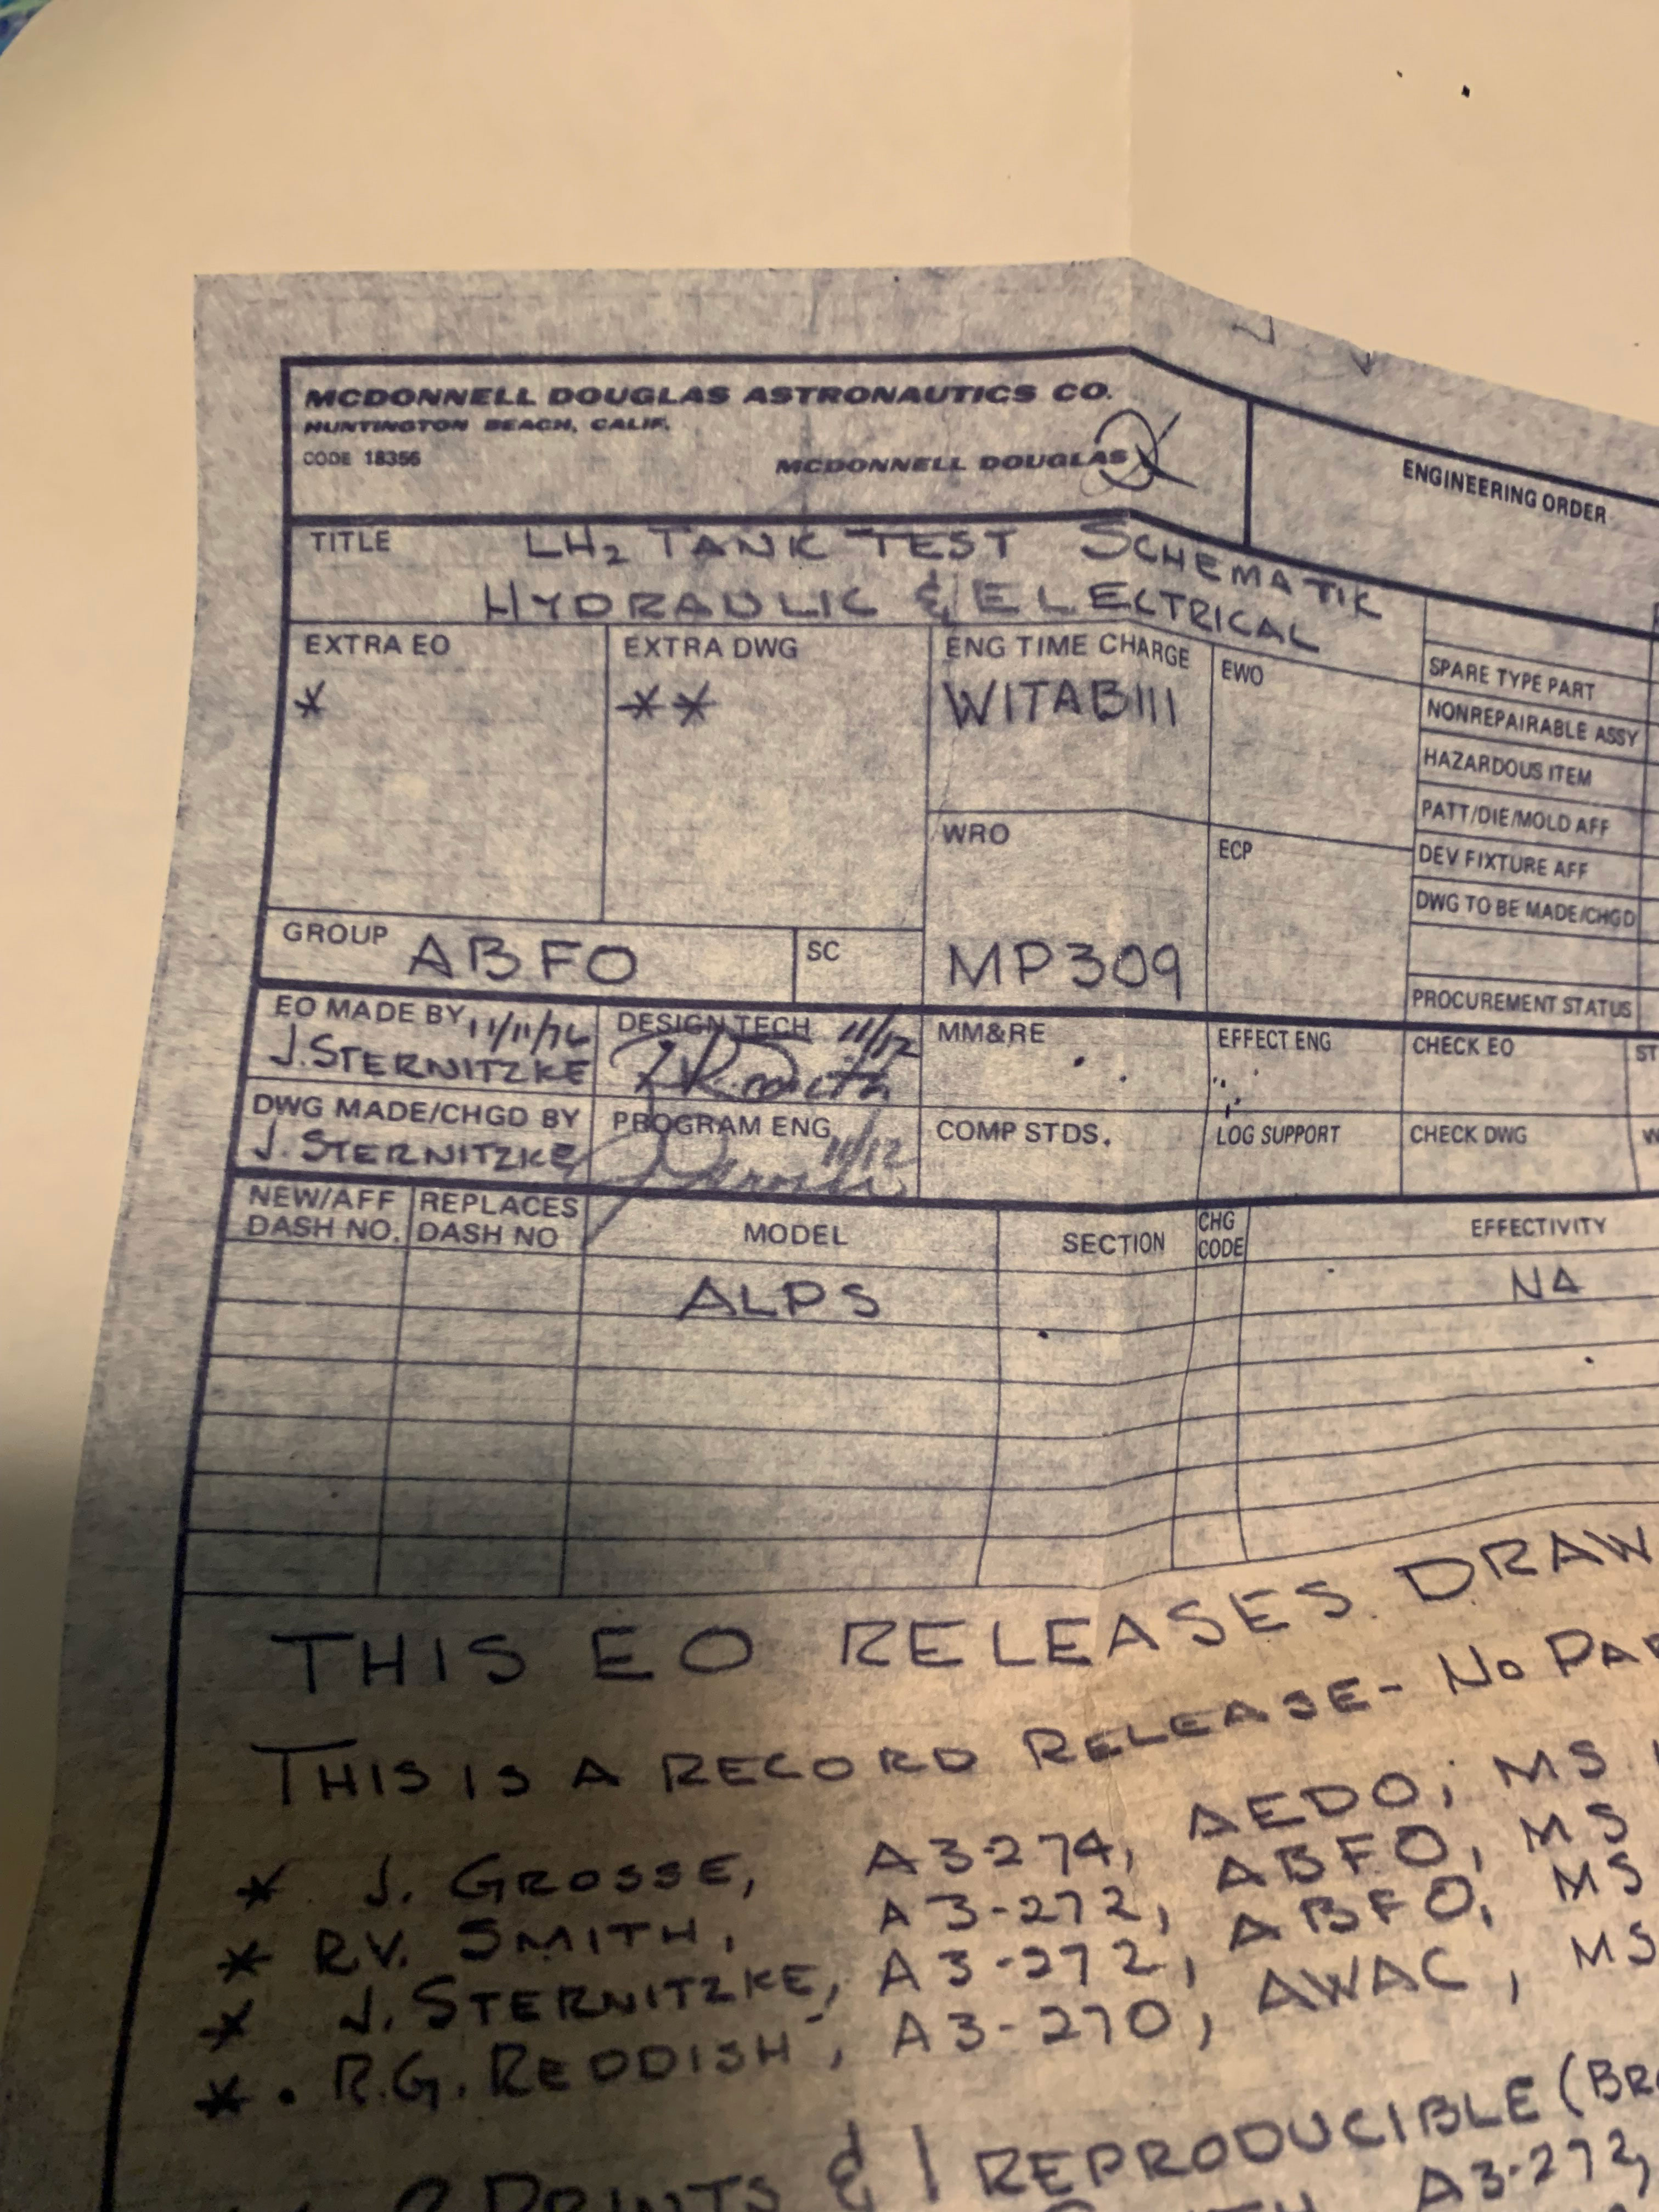 MCDONNELL DOUGLAS ASTRONAUTICS CO.
HUNTINGTON BEACH, CALIF.
CODE 18356
MCDONNELL DOUGLAS
ENGINEERING ORDER
TITLE LH2 TANK TEST SCHEMATIC
HYDRAULIC & ELECTRICAL
EXTRA EO
*
EXTRA DWG
**
ENG TIME CHARGE
WITAB111
EWO
WRO
MP309
ECP
SPARE TYPE PART
NONREPAIRABLE ASSY
HAZARDOUS ITEM
PATT/DIE/MOLD AFF
DEV FIXTURE AFF
DWG TO BE MADE/CHGD
PROCUREMENT STATUS
GROUP ABFO
SC
EO MADE BY 11/11/76
J. STERNITZKE
DESIGN TECH 11/12
MM&RE
EFFECT ENG
CHECK EO
ST
DWG MADE/CHGD BY
J. STERNITZKE
PROGRAM ENG 11/12
COMP STDS.
LOG SUPPORT
CHECK DWG
NEW/AFF
DASH NO.
REPLACES
DASH NO
MODEL
SECTION
CHG
CODE
EFFECTIVITY
ALPS
NA
THIS EO RELEASES DRAW
THIS IS A RECORD RELEASE- NO PAR
* J. GROSSE, A3-274, AEDO, MS
* R.V. SMITH, A3-272, ABFO, MS
* J. STERNITZKE, A3-272, ABFO, MS
* R.G. REDDISH, A3-270, AWAC, MS
2 PRINTS & 1 REPRODUCIBLE (BR
A3-272,